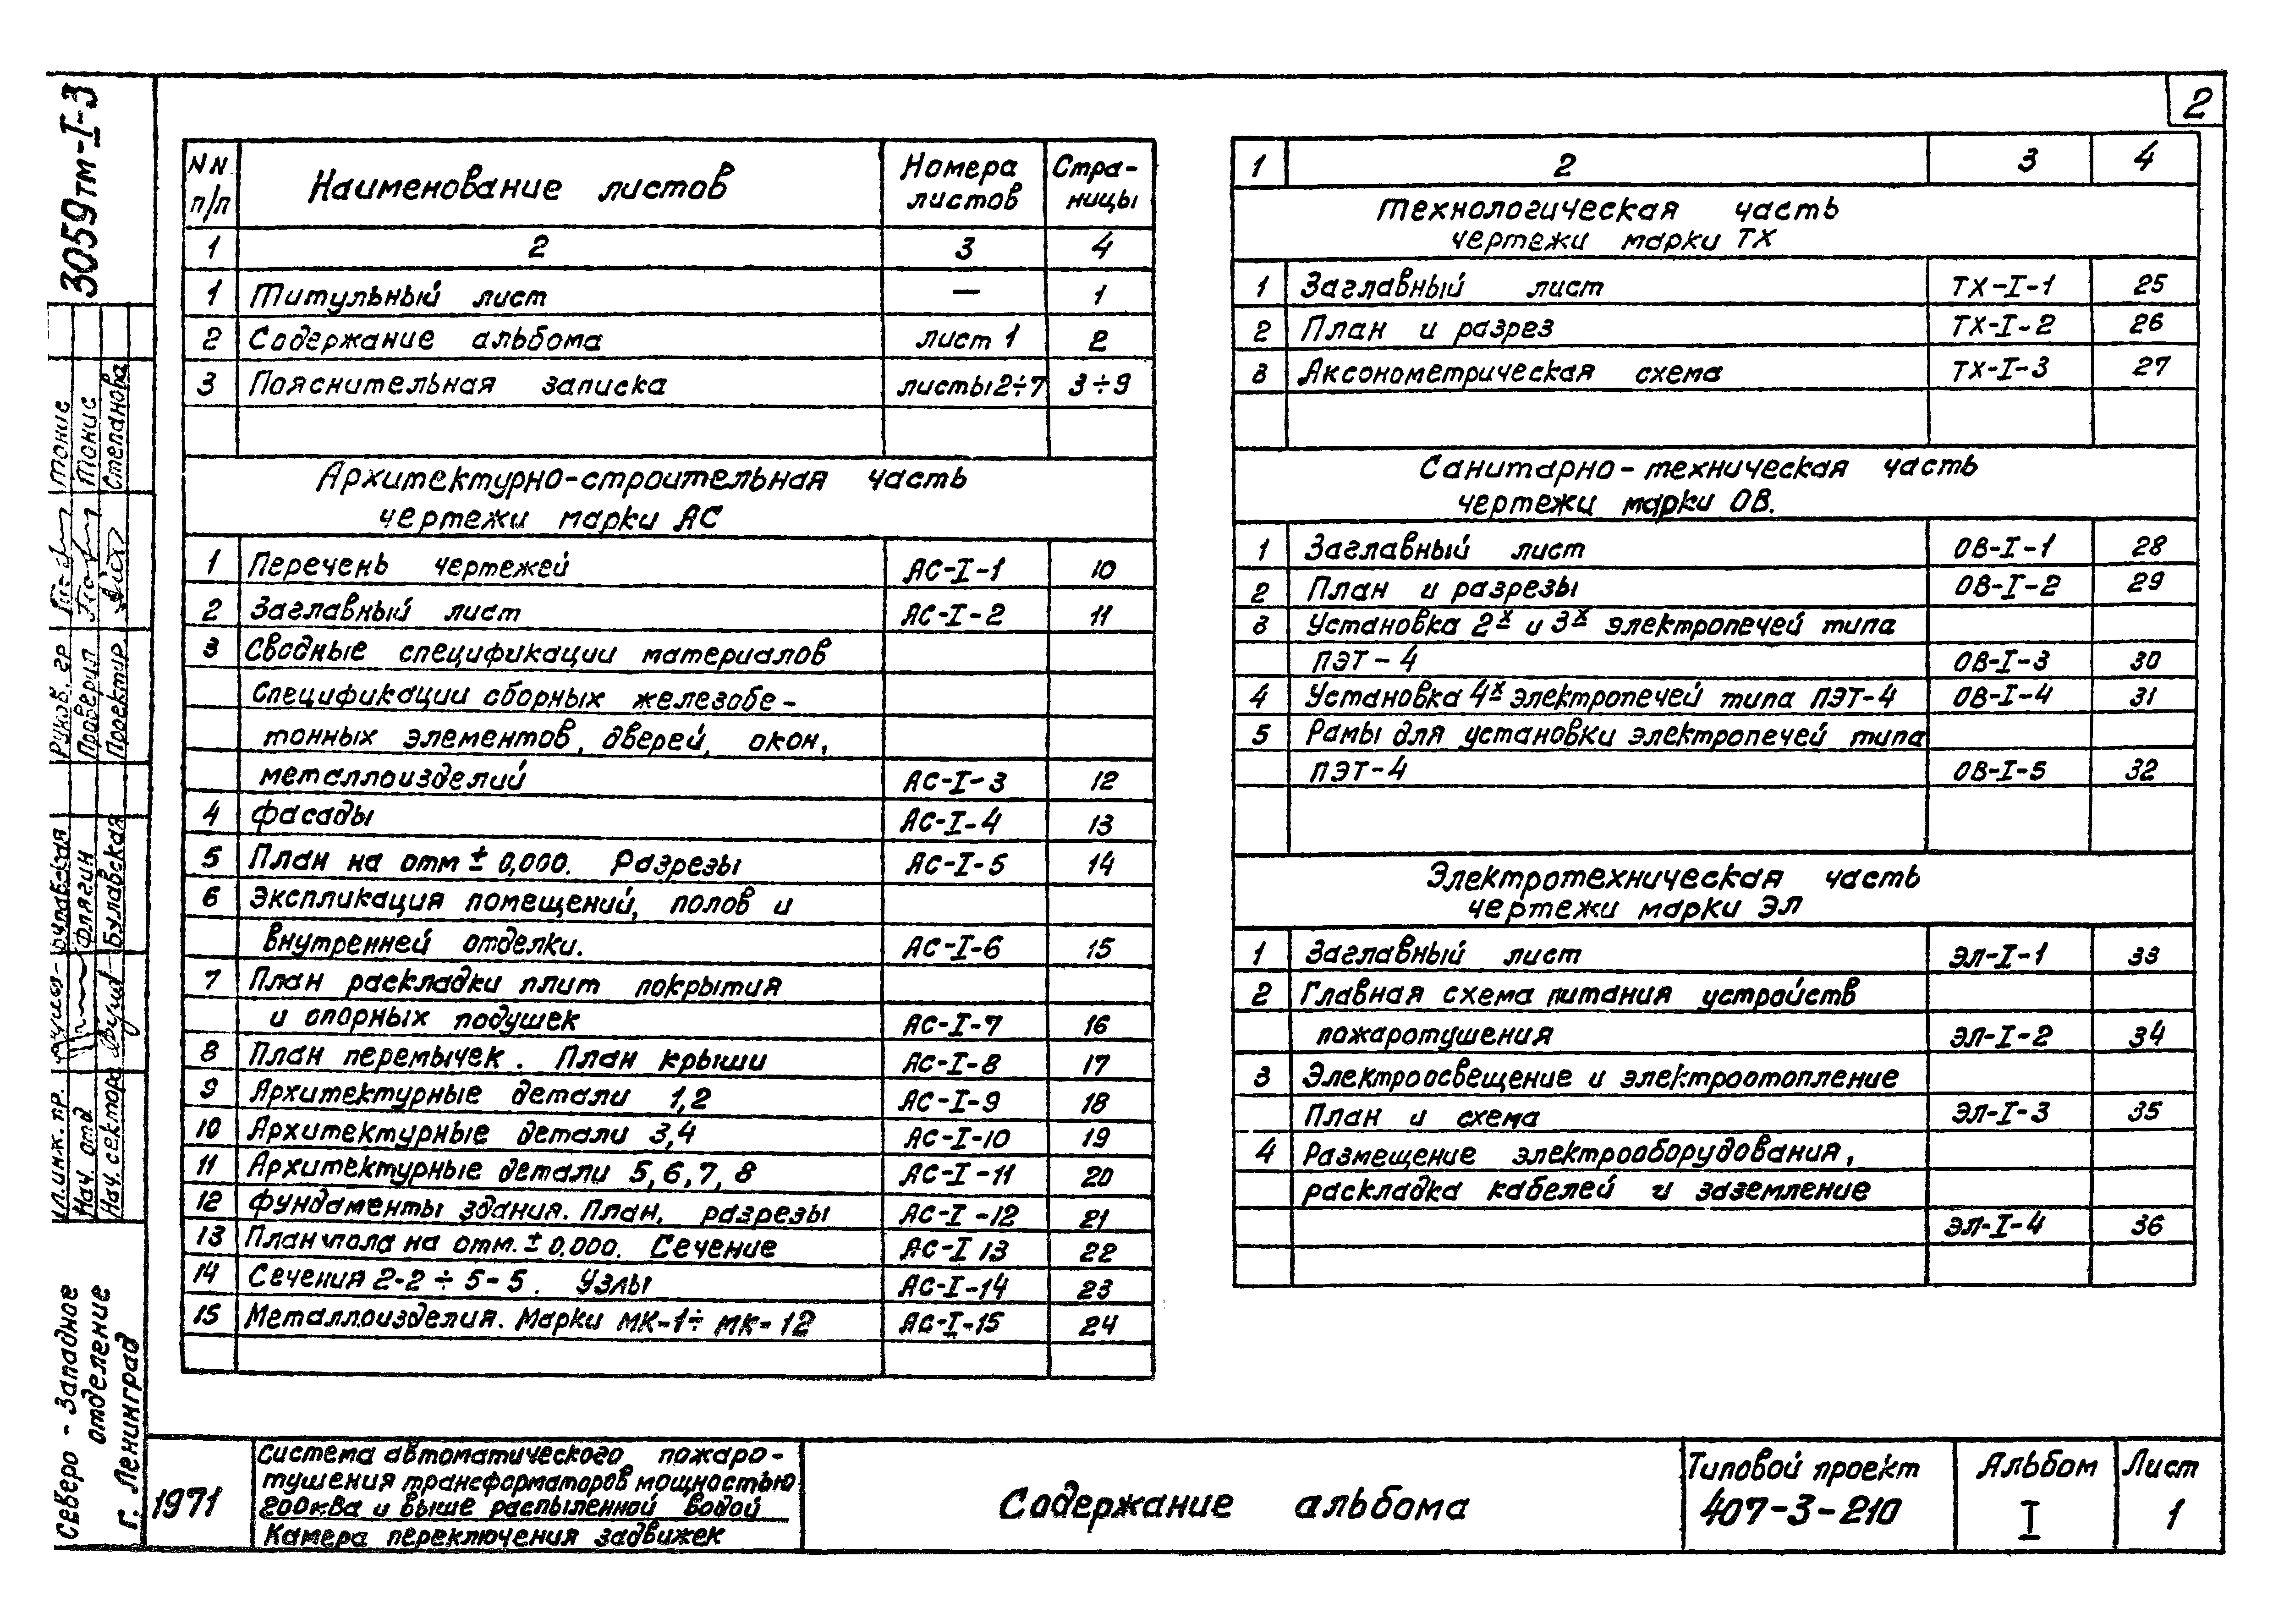 2
3059тм-I-3
NN п/п Наименование листов Номера листов Стра-ницы
1 2 3 4
1 Титульный лист — 1
2 Содержание альбома лист 1 2
3 Пояснительная записка листы 2÷7 3÷9
Архитектурно-строительная часть
чертежи марки АС
1 Перечень чертежей АС-I-1 10
2 Заглавный лист АС-I-2 11
3 Сводные спецификации материалов
Спецификации сборных железобе-
тонных элементов, дверей, окон,
металлоизделий АС-I-3 12
4 Фасады АС-I-4 13
5 План на отм ± 0,000. Разрезы АС-I-5 14
6 Экспликация помещений, полов и
внутренней отделки. АС-I-6 15
7 План раскладки плит покрытия
и опорных подушек АС-I-7 16
8 План перемычек. План крыши АС-I-8 17
9 Архитектурные детали 1,2 АС-I-9 18
10 Архитектурные детали 3,4 АС-I-10 19
11 Архитектурные детали 5,6,7,8 АС-I-11 20
12 Фундаменты здания. План, разрезы АС-I-12 21
13 План пола на отм. ± 0,000. Сечение АС-I 13 22
14 Сечения 2-2 ÷ 5-5. Узлы АС-I-14 23
15 Металлоизделия. Марки МК-1÷ МК-12 АС-I-15 24
1 2 3 4
Технологическая часть
чертежи марки ТХ
1 Заглавный лист ТХ-I-1 25
2 План и разрез ТХ-I-2 26
3 Аксонометрическая схема ТХ-I-3 27
Санитарно-техническая часть
чертежи марки ОВ.
1 Заглавный лист ОВ-I-1 28
2 План и разрезы ОВ-I-2 29
3 Установка 2х и 3х электропечей типа
ПЭТ-4 ОВ-I-3 30
4 Установка 4х электропечей типа ПЭТ-4 ОВ-I-4 31
5 Рамы для установки электропечей типа
ПЭТ-4 ОВ-I-5 32
Электротехническая часть
чертежи марки ЭЛ
1 Заглавный лист ЭЛ-I-1 33
2 Главная схема питания устройств
пожаротушения ЭЛ-I-2 34
3 Электроосвещение и электроотопление
План и схема ЭЛ-I-3 35
4 Размещение электрооборудования,
раскладка кабелей и заземление
ЭЛ-I-4 36
Руков. гр Тюнис
Проверил Тюнис
Проектир. Степанова
Гл. инж. пр.
Нач. отд Флягин
Нач. сектора Булавская
Северо-Западное
отделение
г. Ленинград
1971
Система автоматического пожаро-
тушения трансформаторов мощностью
200кВа и выше распыленной водой
Камера переключения задвижек
Содержание альбома
Типовой проект
407-3-210
Альбом
I
Лист
1